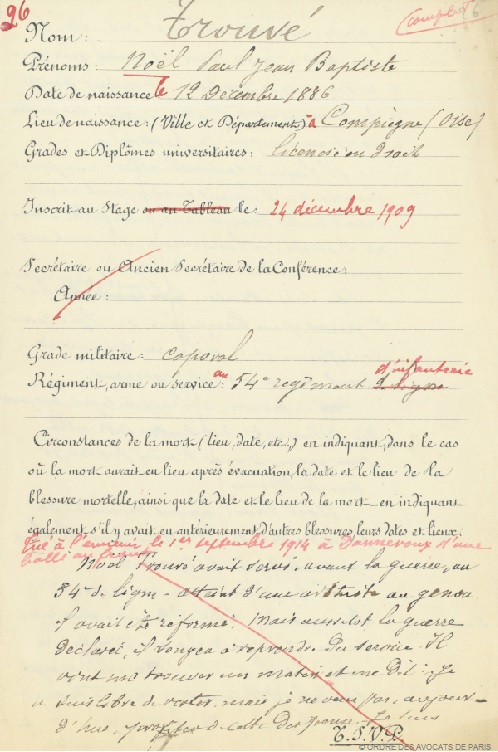 26
complet
6
Nom: Trouvé
Prénoms: Noël Paul Jean Baptiste
Date de naissance le 12 Décembre 1886
Lieu de naissance: (Ville et Département) à Compiègne (Oise)
Grades et Diplômes universitaires: licencié en Droit
Inscrit au Stage ou au Tableau le: 24 décembre 1909
Secrétaire ou Ancien Secrétaire de la Conférence:
Année:
Grade militaire: caporal
d'infanterie
Régiment, arme ou service: au 54e régiment de ligne
Circonstances de la mort (lieu, date, etc.) en indiquant, dans le cas
où la mort aurait eu lieu après évacuation, la date et le lieu de la
blessure mortelle, ainsi que la date et le lieu de la mort en indiquant
également, s'il y avait eu antérieurement d'autres blessures, leurs dates et lieux.
Tué à l'ennemi le 1er septembre 1914 à Dannevoux d'une
balle au
Noël Trouvé avait servi, avant la guerre, au
54e de ligne - atteint d'une arthrite au genou
il avait été réformé. Mais aussitôt la guerre
déclarée, il songea à reprendre du service. Il
vint me trouver un matin et me dit: Je
suis libre de rester, mais je ne veux pas, aujour-
d'hui, profiter de cette
T.S.V.P.
© ORDRE DES AVOCATS DE PARIS